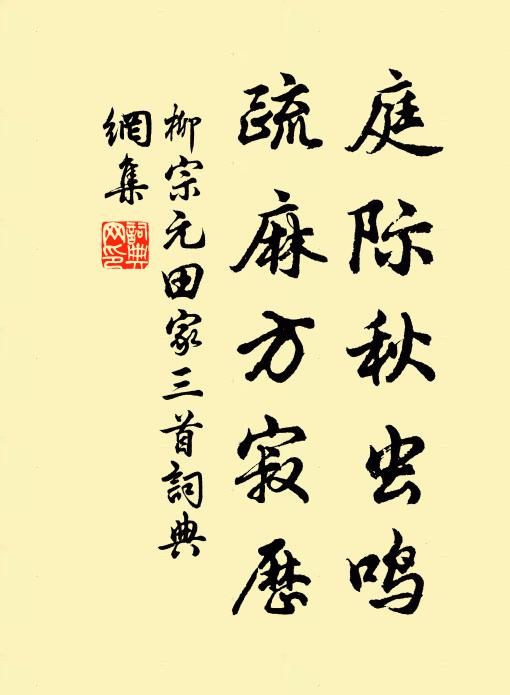 庭际秋虫鸣
疏麻方寂历
柳宗元田家三首詞典
網集
詞典
网印